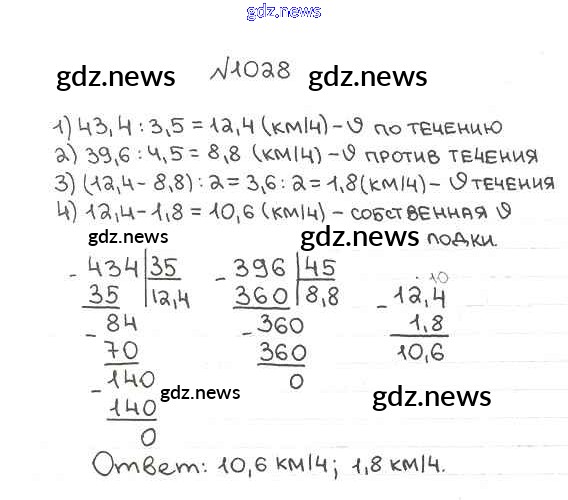 gdz.news
gdz.news №1028 gdz.news
1) 43,4 : 3,5 = 12,4 (км/ч) – υ по течению
2) 39,6 : 4,5 = 8,8 (км/ч) – υ против течения
3) (12,4 – 8,8) : 2 = 3,6 : 2 = 1,8 (км/ч) – υ течения
4) 12,4 – 1,8 = 10,6 (км/ч) – собственная υ
gdz.news gdz.news лодки.
- 434 | 35
35 | 12,4
- 84
70
- 140
140
0
- 396 | 45
360 | 8,8
- 360
360
0
. 10
- 12,4
1,8
10,6
gdz.news gdz.news
Ответ: 10,6 км/ч; 1,8 км/ч.